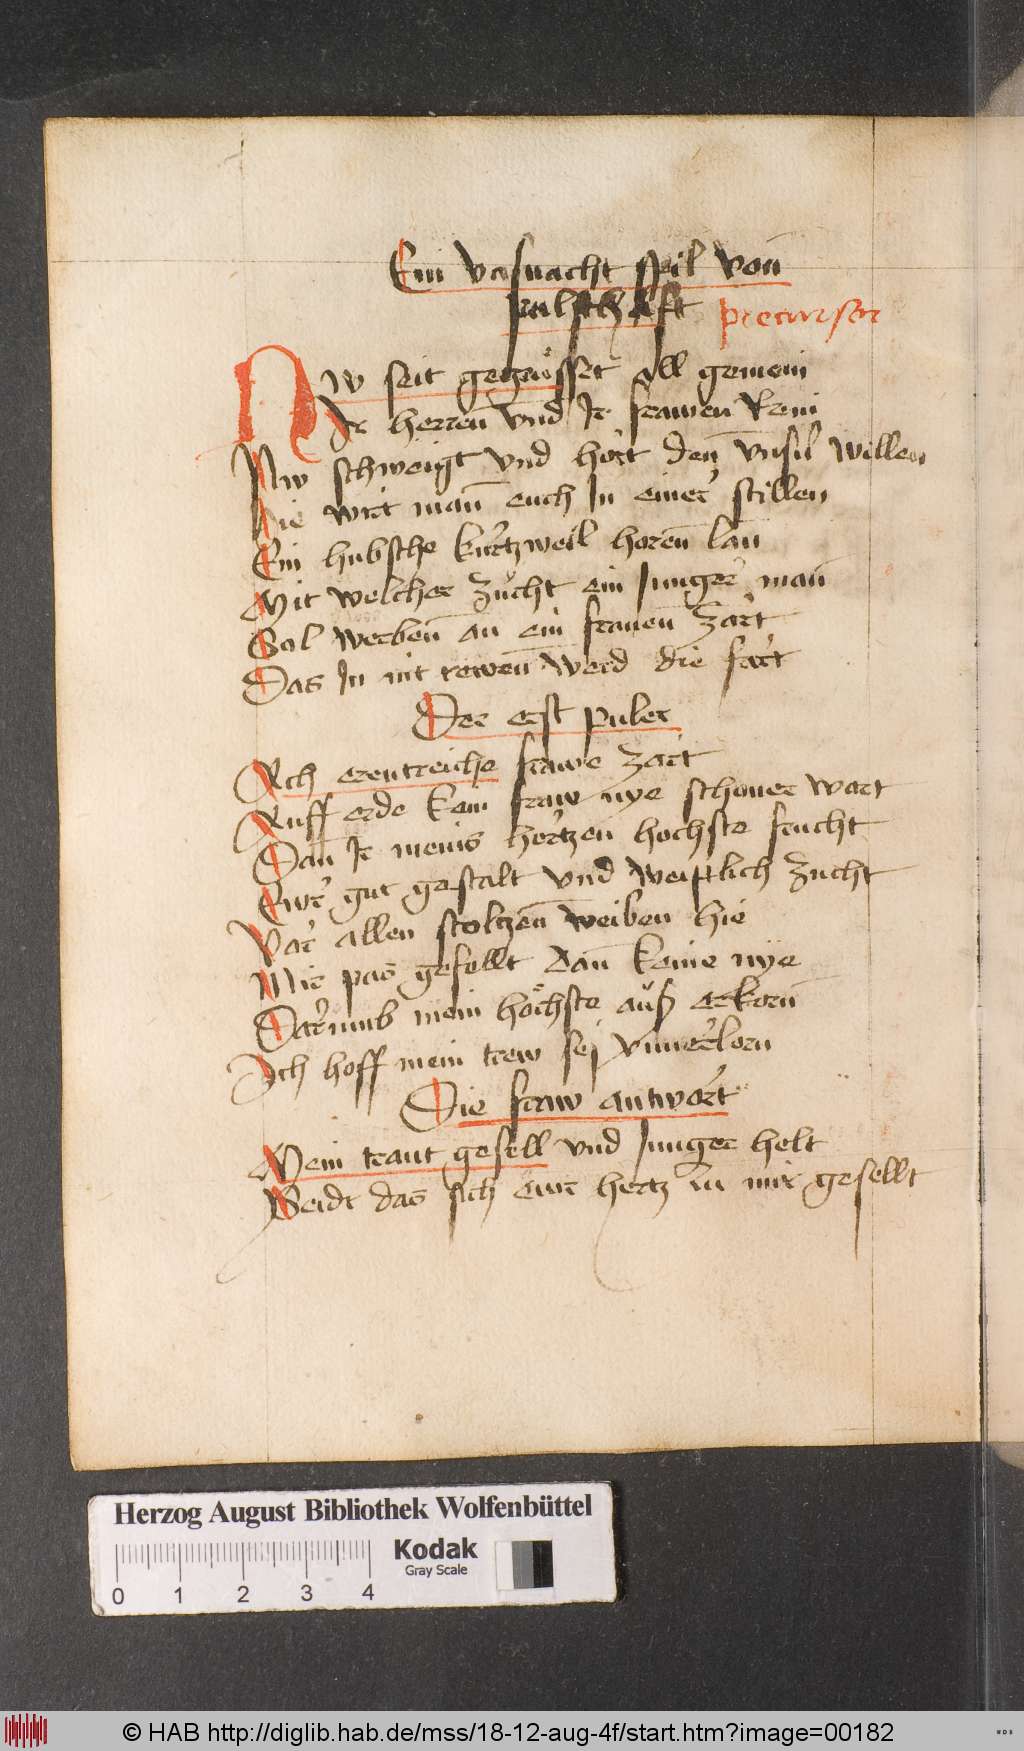 Ein vasnacht spil von̄
pulschafft precursor
Nw seit gegrüsset all gemein
Ir herren̄ vnd Ir frawen Rein
Nw schweigt vnd hört den̄ willen
Hie wirt man̄ euch In einer stillen
Ein hubsche kurtzweil horen̄ lan̄
Mit welcher zücht ein Junger man̄
Sol werben̄ an ein frauen̄ zart
Das In nit rewen̄ werd die fart
Der erst puler
Ach erentreiche frawe zart
Auff erde kein fraw nye schoner wart
Dan̄ Ir meins hertzen hochste frucht
Ewr gut gestalt vnd weiplich zucht
Vor allen stoltzen̄ weiben hie
Mir pas gefellt dan̄ keine nye
Darumb mein höchste auß erkorn̄
Ich hoff mein trew sej vnuerlorn
Die fraw antwort
Mein traut gesell vnd Junger helt
Seidt das sich ewr hertz zu mir gesellt
Herzog August Bibliothek Wolfenbüttel
Kodak
Gray Scale
0 1 2 3 4
© HAB http://diglib.hab.de/mss/18-12-aug-4f/start.htm?image=00182